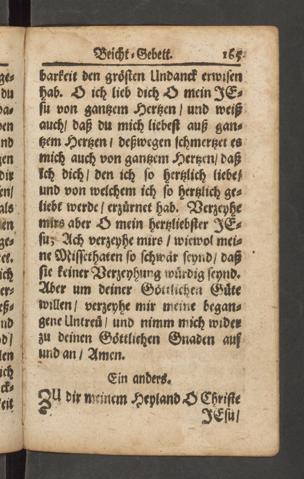 Beicht-Gebett. 165
barkeit den grösten Undanck erwisen
hab. O ich lieb dich O mein JE-
su von gantzem Hertzen/ und weiß
auch/ daß du mich liebest auß gan-
tzem Hertzen/ deßwegen schmertzet es
mich auch von gantzem Hertzen/ daß
ich dich/ den ich so hertzlich liebe/
und von welchem ich so hertzlich ge-
liebt werde/ erzürnet hab. Verzeyhe
mirs aber O mein hertzliebster JE-
su; Ach verzeyhe mirs/ wiewol mei-
ne Missethaten so schwär seynd/ daß
sie keiner Verzeyhung würdig seynd.
Aber um deiner Göttlichen Güte
willen/ verzeyhe mir meine began-
gene Untreü/ und nimm mich wider
zu deinen Göttlichen Gnaden auf
und an/ Amen.
Ein anders.
ZU dir meinem Heyland O Christe
JEsu/